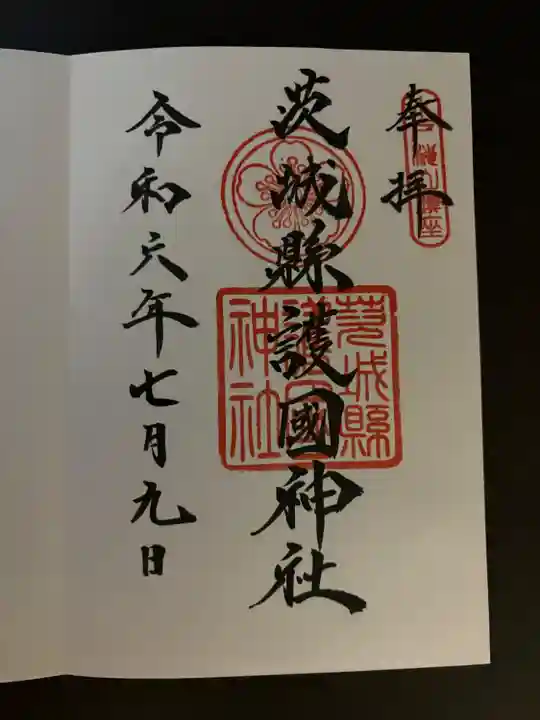 奉拝
茨城縣護國神社
茨城縣
護國
神社
令和六年七月九日